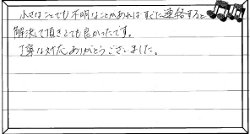 小さなことでも不明なことがあればすぐに連絡すると
解決して頂きとても良かったです。
丁寧な対応ありがとうございました。